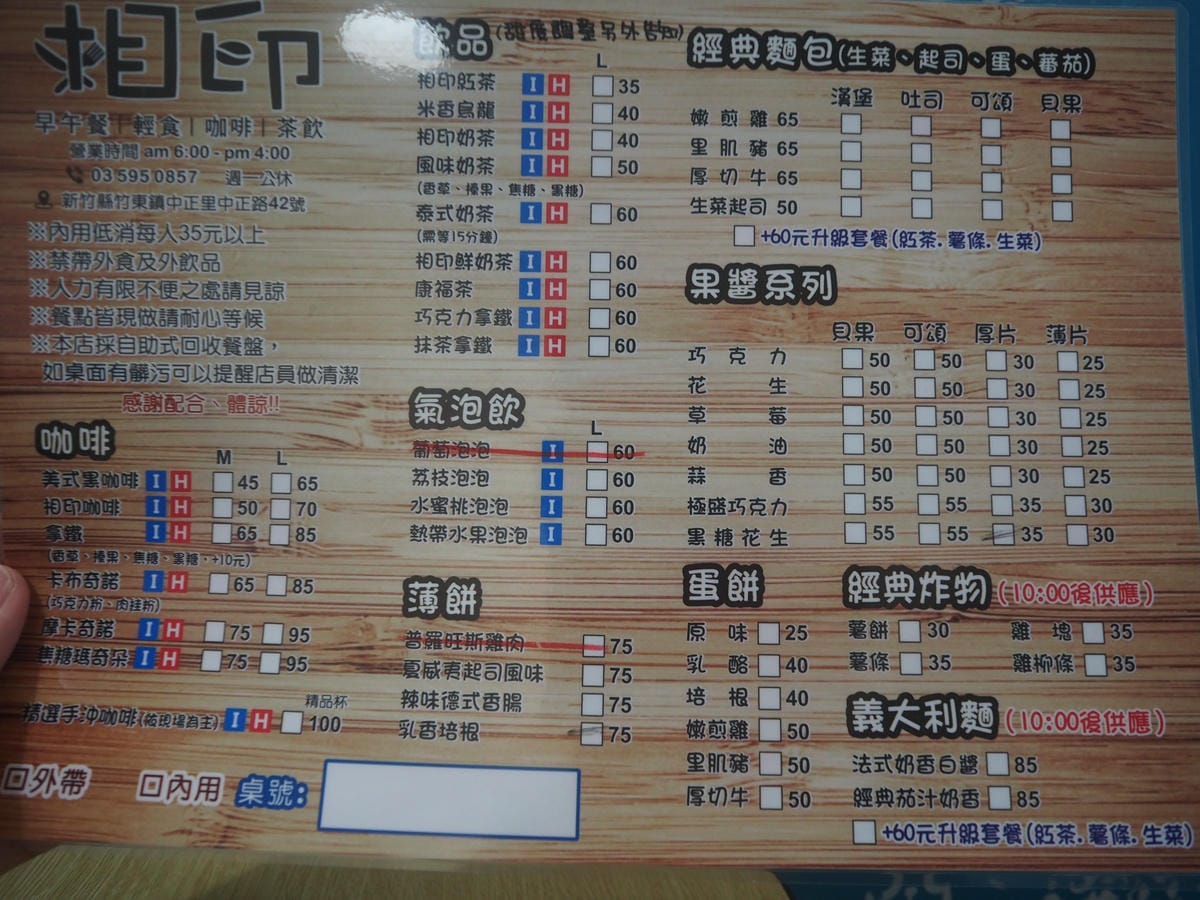 相印
早午餐|輕食|咖啡|茶飲
營業時間 am 6:00 - pm 4:00
03 595 0857 週一公休
新竹縣竹東鎮中正里中正路42號
※內用低消每人35元以上
※禁帶外食及外飲品
※人力有限不便之處請見諒
※餐點皆現做請耐心等候
※本店採自助式回收餐盤，
如桌面有髒污可以提醒店員做清潔
感謝配合、體諒!!
咖啡
M L
美式黑咖啡 I H 45 65
相印咖啡 I H 50 70
拿鐵 I H 65 85
(香草、榛果、焦糖、黑糖，+10元)
卡布奇諾 I H 65 85
(巧克力粉、肉桂粉)
摩卡奇諾 I H 75 95
焦糖瑪奇朵 I H 75 95
精品杯
精選手沖咖啡(依現場為主) I H 100
外帶 內用 桌號:
飲品(甜度調整另外告知)
L
相印紅茶 I H 35
米香烏龍 I H 40
相印奶茶 I H 40
風味奶茶 I H 50
(香草、榛果、焦糖、黑糖)
泰式奶茶 I H 60
(需等15分鐘)
相印鮮奶茶 I H 60
康福茶 I H 60
巧克力拿鐵 I H 60
抹茶拿鐵 I H 60
氣泡飲
L
葡萄泡泡 I 60
荔枝泡泡 I 60
水蜜桃泡泡 I 60
熱帶水果泡泡 I 60
薄餅
普羅旺斯雞肉 75
夏威夷起司風味 75
辣味德式香腸 75
乳香培根 75
經典麵包(生菜、起司、蛋、蕃茄)
漢堡 吐司 可頌 貝果
嫩煎雞 65
里肌豬 65
厚切牛 65
生菜起司 50
+60元升級套餐(紅茶.薯條.生菜)
果醬系列
貝果 可頌 厚片 薄片
巧克力 50 50 30 25
花生 50 50 30 25
草莓 50 50 30 25
奶油 50 50 30 25
蒜香 50 50 30 25
極盛巧克力 55 55 35 30
黑糖花生 55 55 35 30
蛋餅
原味 25
乳酪 40
培根 40
嫩煎雞 50
里肌豬 50
厚切牛 50
經典炸物(10:00後供應)
薯餅 30 雞塊 35
薯條 35 雞柳條 35
義大利麵(10:00後供應)
法式奶香白醬 85
經典茄汁奶香 85
+60元升級套餐(紅茶.薯條.生菜)